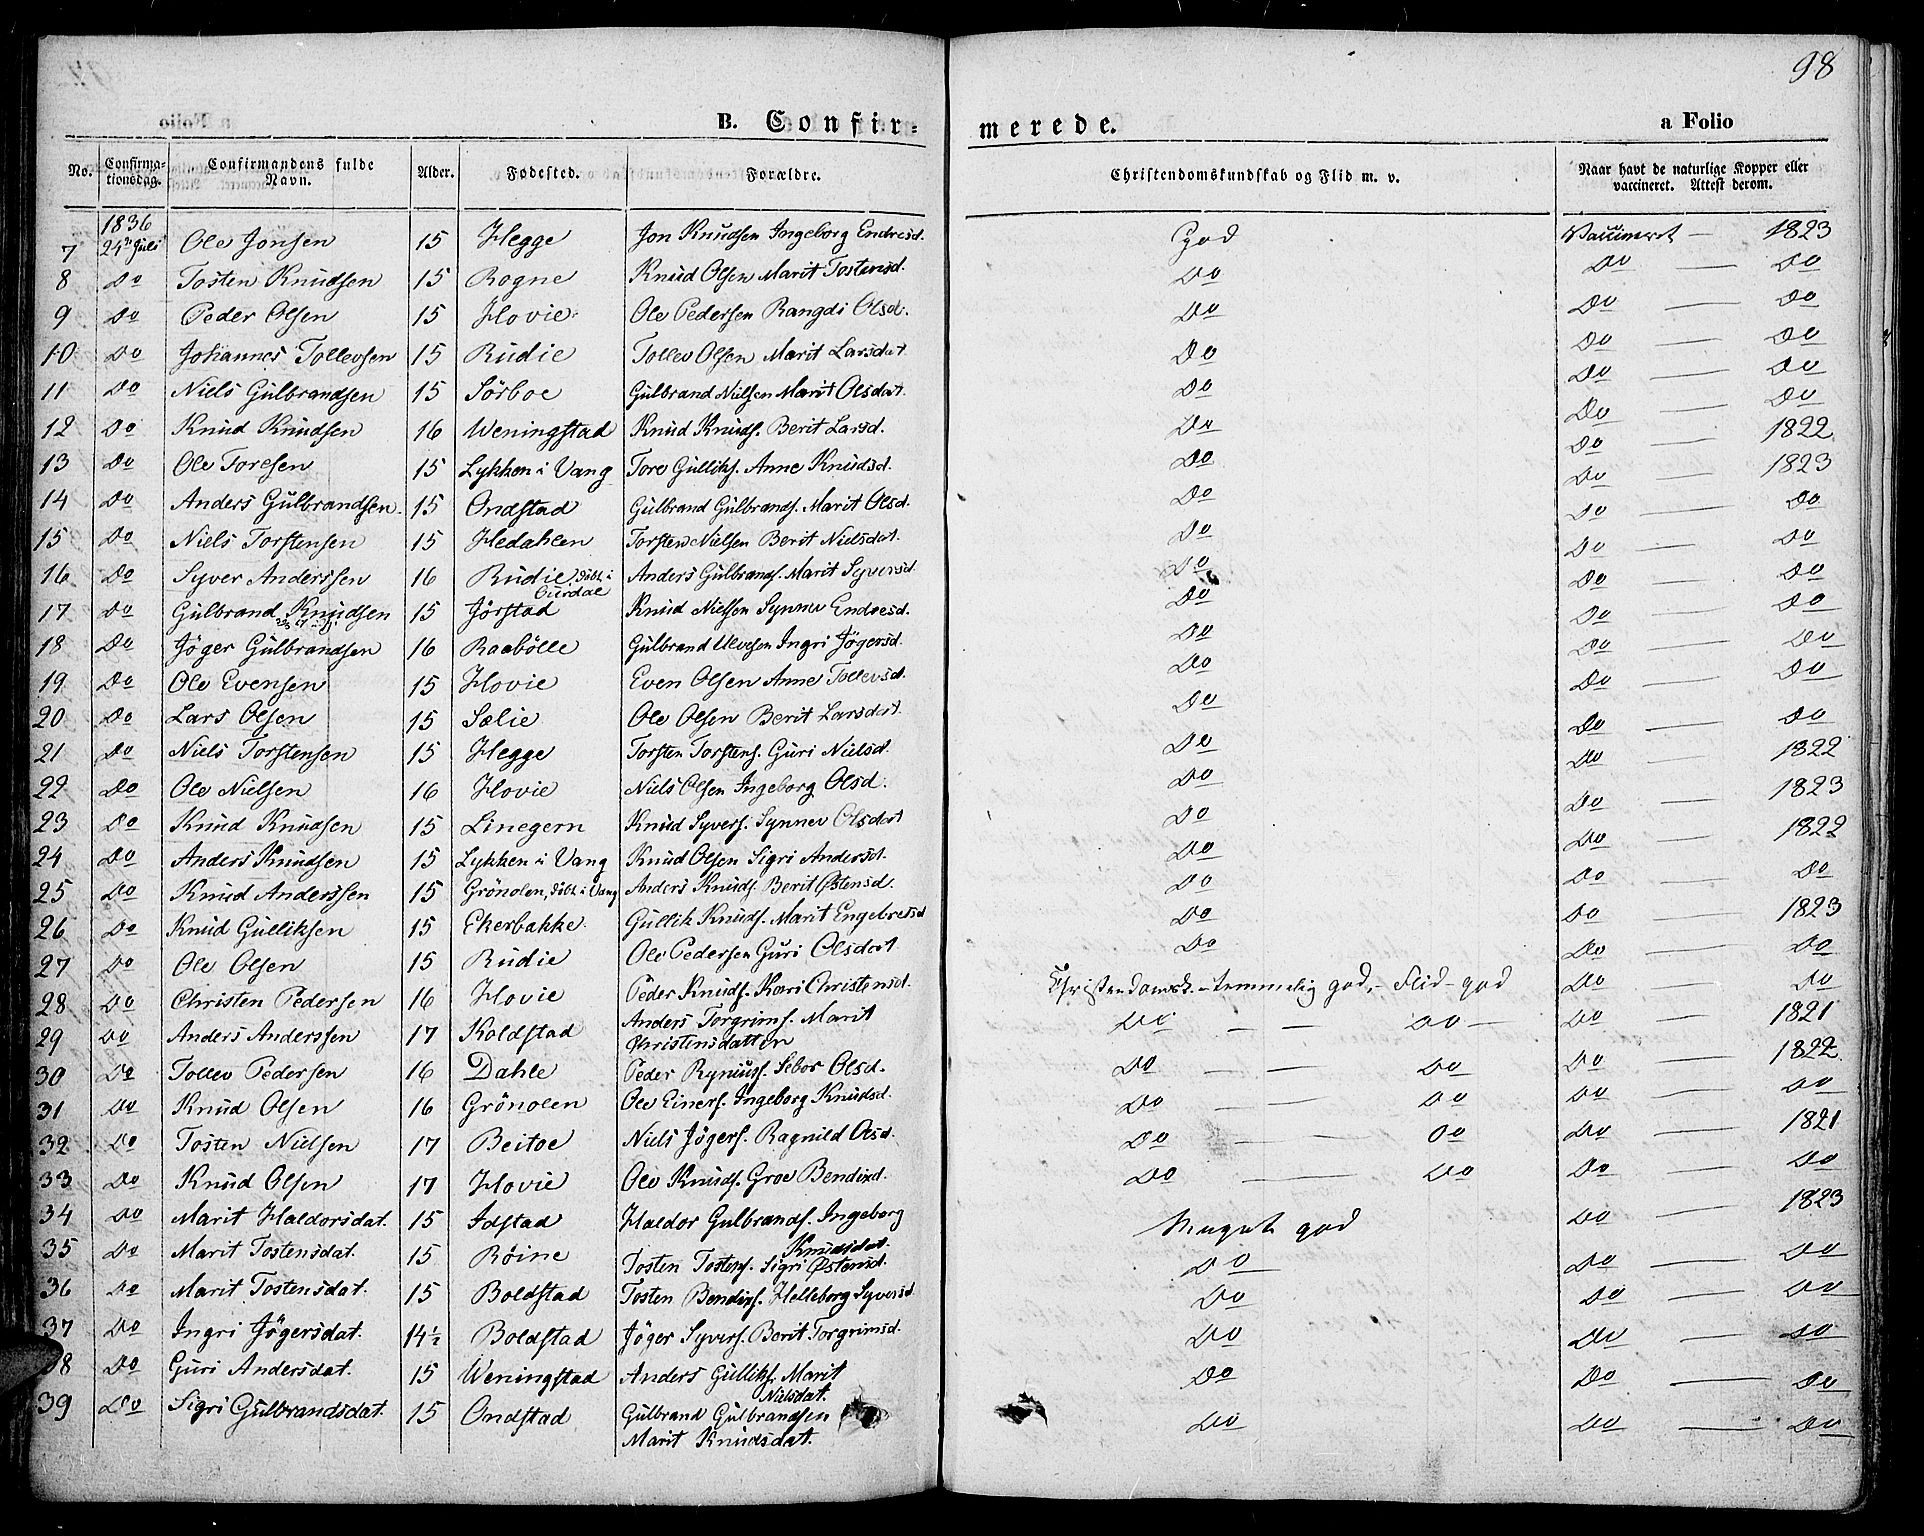 98
B. Confir- merede. a Folio
No. Confirma-tionsdag. Confirmandens fulde Navn. Alder. Fødested. Forældre. Christendomskundskab og Flid m. v. Naar havt de naturlige Kopper eller vaccineret. Attest derom.
1836
7 24de Juli Ole Jonsen 15 Hegge Jon Knudsen Ingeborg Endresd. God Vaccineret — 1823
8 Do Tosten Knudsen 15 Rogne Knud Olsen Marit Tostensd. Do Do — Do
9 Do Peder Olsen 15 Hovie Ole Pedersen Rangdi Olsd. Do Do — Do
10 Do Johannes Tollevsen 15 Rudie Tollev Olsen Marit Larsdat. Do Do — Do
11 Do Niels Gulbrandsen 15 Sörboe Gulbrand Nielsen Marit Olsdat. Do Do — Do
12 Do Knud Knudsen 16 Weningstad Knud Knuds. Berit Larsd. Do Do — Do
13 Do Ole Toresen 15 Lykken i Vang Tore Gulliks. Anne Knudsd. Do Do — 1822
14 Do Anders Gulbrandsen. 15 Ondstad Gulbrand Gulbrands. Marit Olsd. Do Do — 1823
15 Do Niels Torstensen 15 Hedahlen Torsten Nielsen Berit Nielsdat. Do Do — Do
16 Do Syver Anderssen 16 Rudie, döbt i Ourdal Anders Gulbrands. Marit Syversd. Do Do — Do
17 Do Gulbrand Knudsen 15 Jörstad Knud Nielsen Synnev Endresd. Do Do — Do
18 Do Jöger Gulbrandsen 16 Raabölle Gulbrand Ulvesen Ingri Jögersd. Do Do — Do
19 Do Ole Evensen 15 Hovie Even Olsen Anne Tollevsd. Do Do — Do
20 Do Lars Olsen 15 Sælie Ole Olsen Berit Larsdat. Do Do — Do
21 Do Niels Torstensen 15 Hegge Torsten Torstens. Guri Nielsd. Do Do — Do
22 Do Ole Nielsen 16 Hovie Niels Olsen Ingeborg Olsd. Do Do — 1822
23 Do Knud Knudsen 15 Linegern Knud Syvers. Synnev Olsdat Do Do — 1823
24 Do Anders Knudsen 15 Lykken i Vang Knud Olsen Sigri Andersd. Do Do — 1822
25 Do Knud Anderssen 15 Grönolen, döbt i Vang Anders Knuds. Berit Østensd. Do Do — Do
26 Do Knud Gulliksen 15 Ekerbakke Gullik Knuds. Marit Engebretsd Do Do — 1823
27 Do Ole Olsen 15 Rudie Ole Pedersen Guri Olsdat Do Do — Do
28 Do Christen Pedersen 16 Hovie Peder Knuds. Kari Christensd. Christendomsk. temmelig god, – Flid – god Do — Do
29 Do Anders Anderssen 17 Koldstad Anders Torgrims. Marit Christensdatten Do — — Do — Do — 1821
30 Do Tollev Pedersen 16 Dahle Peder Ryniuds. Sebor Olsd. Do — — Do Do — 1822
31 Do Knud Olsen 16 Grönolen Ole Einers. Ingeborg Knudsd. Do — — Do Do — Do
32 Do Tosten Nielsen 17 Beitoe Niels Jögers. Ragnild Olsd. Do — — Do Do — 1821
33 Do Knud Olsen 17 Hovie Ole Knuds. Groe Bendixd. Do — Do Do — Do
34 Do Marit Haldorsdat. 15 Idstad Haldor Gulbrands. Ingeborg Knudsdat. Meget god Do — 1823
35 Do Marit Tostensdat. 15 Röine Tosten Tostens. Sigri Østensd. Do Do — Do
36 Do Marit Tostensdat. 15 Boldstad Tosten Bendixs. Helleborg Syversd Do Do — Do
37 Do Ingri Jögersdat. 14½ Boldstad Jöger Syvers. Berit Torgrimsd. Do Do — Do
38 Do Guri Andersdat. 15 Weningstad Anders Gulliks. Marit Nielsdat. Do Do — Do
39 Do Sigri Gulbrandsdat. 15 Ondstad Gulbrand Gulbrandsen Marit Knudsdat. Do Do — Do